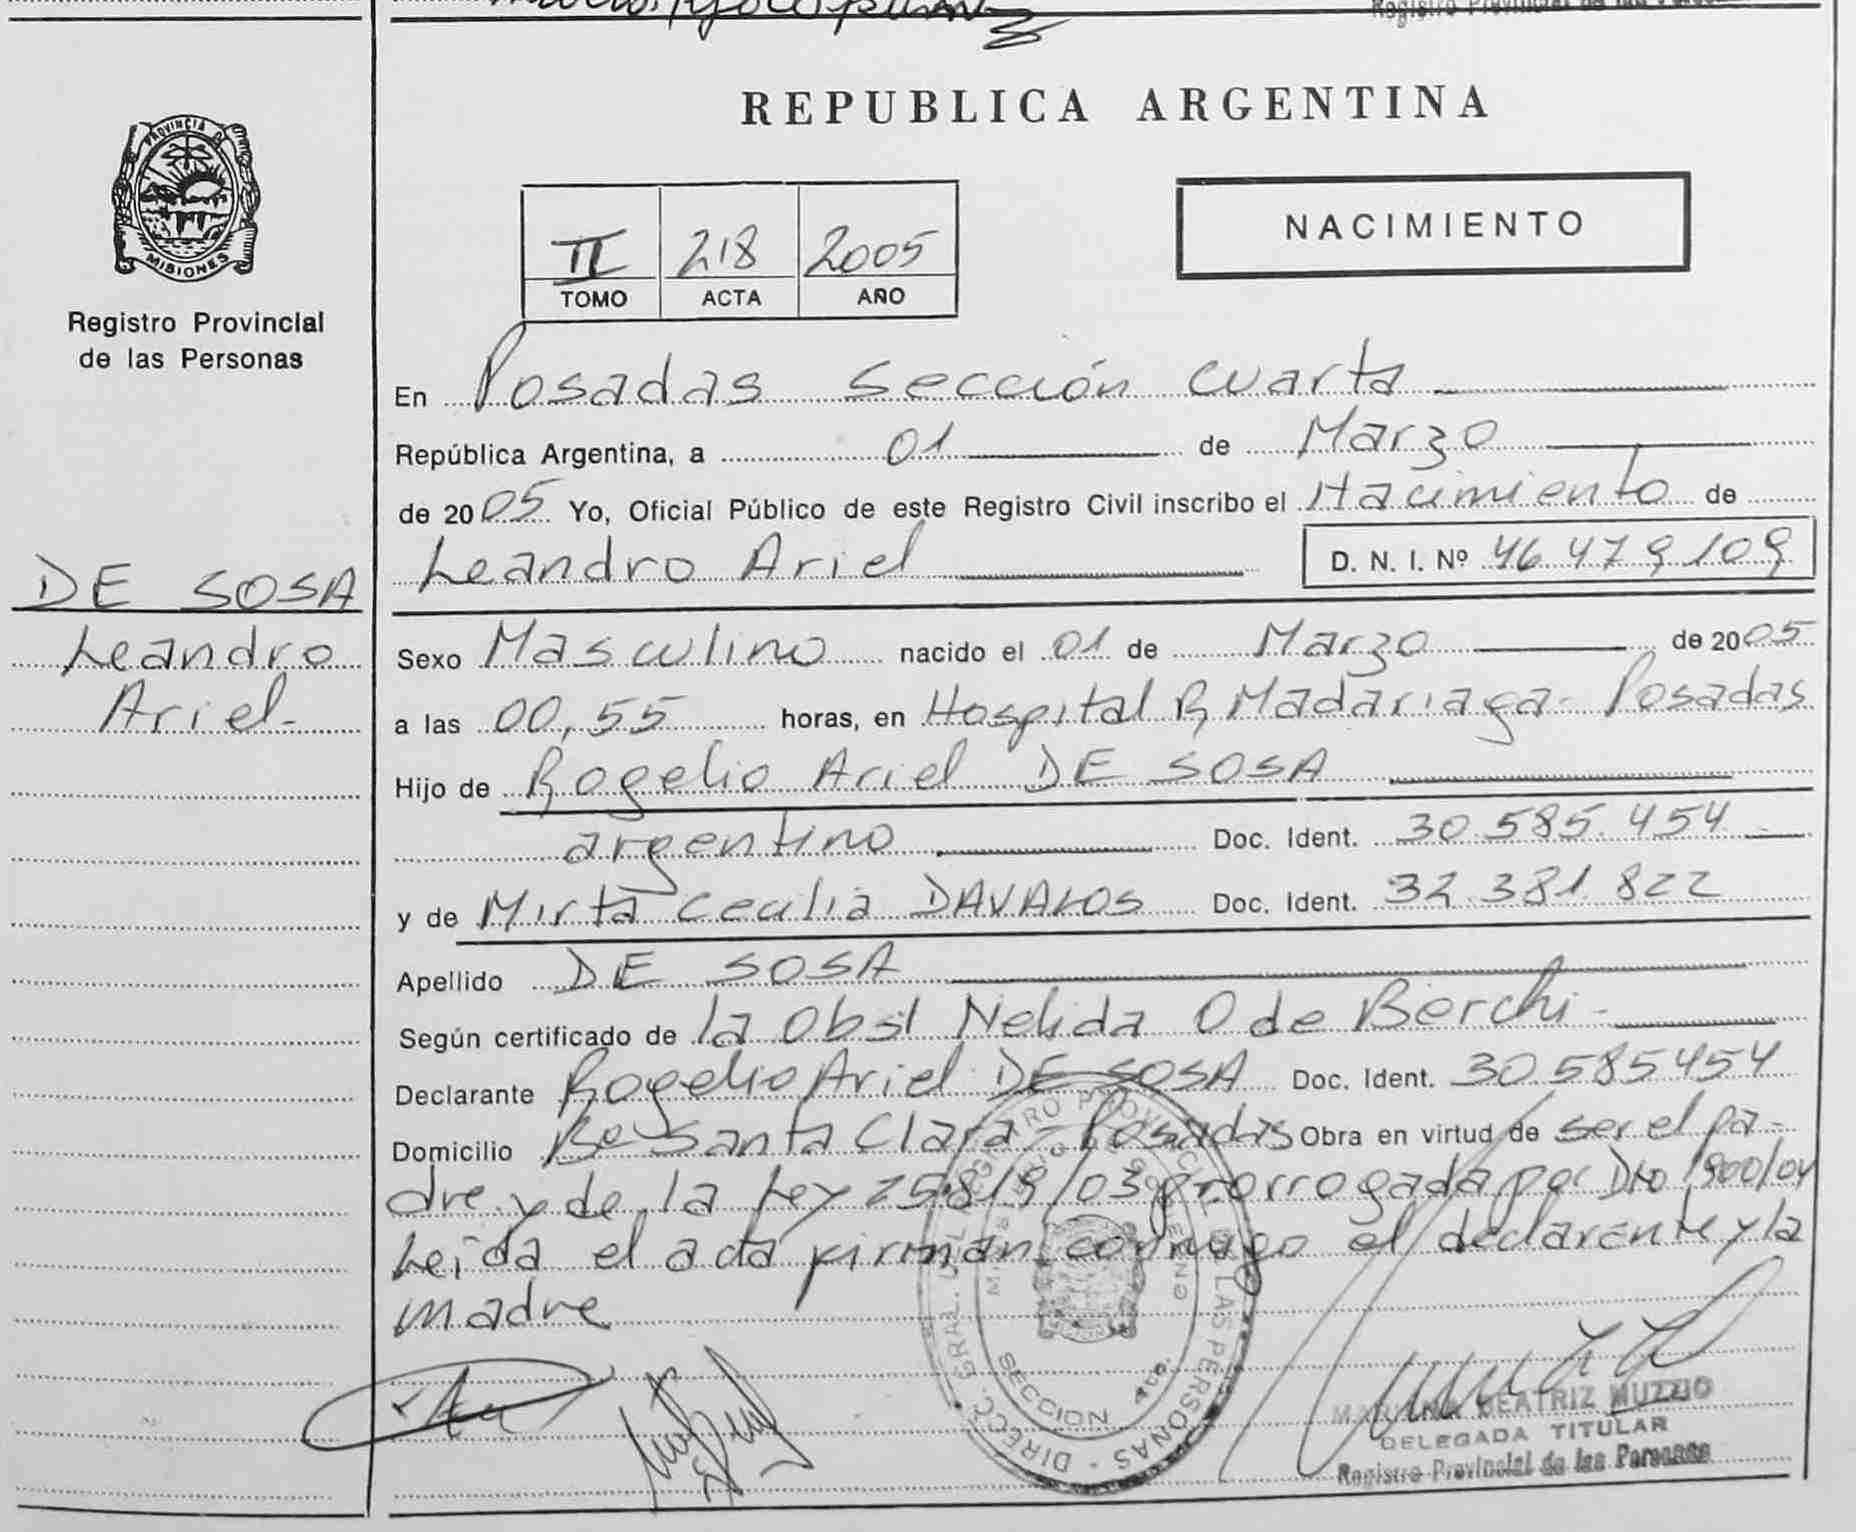 Registro Provincial de las Personas
REPUBLICA ARGENTINA
PROVINCIA D
MISIONES
Registro Provincial
de las Personas
II 218 2005
TOMO ACTA AÑO
NACIMIENTO
En Posadas sección cuarta
República Argentina, a 01 de Marzo
de 2005 Yo, Oficial Público de este Registro Civil inscribo el Nacimiento de
Leandro Ariel D. N. I. Nº 46.479.109
DE SOSA
Leandro
Ariel-
Sexo Masculino nacido el 01 de Marzo de 2005
a las 00,55 horas, en Hospital R, Madariaga- Posadas
Hijo de Rogelio Ariel DE SOSA
argentino Doc. Ident. 30.585.454
y de Mirta Cecilia DAVALOS Doc. Ident. 32.381.822
Apellido DE SOSA
Según certificado de la Obst Nelida O de Berchi-
Declarante Rogelio Ariel DE SOSA Doc. Ident. 30.585454
Domicilio Bº Santa Clara - Posadas Obra en virtud de ser el pa-
dre y de la Ley 25.819/03 prorrogada por 1900/04
Leída el acta firman conmigo el declarante y la
madre
DIRECC. GRAL. DEL REGISTRO PROVINCIAL DE LAS PERSONAS
SECCION 4ta.
MARIANA BEATRIZ MUZZIO
DELEGADA TITULAR
Registro Provincial de las Personas